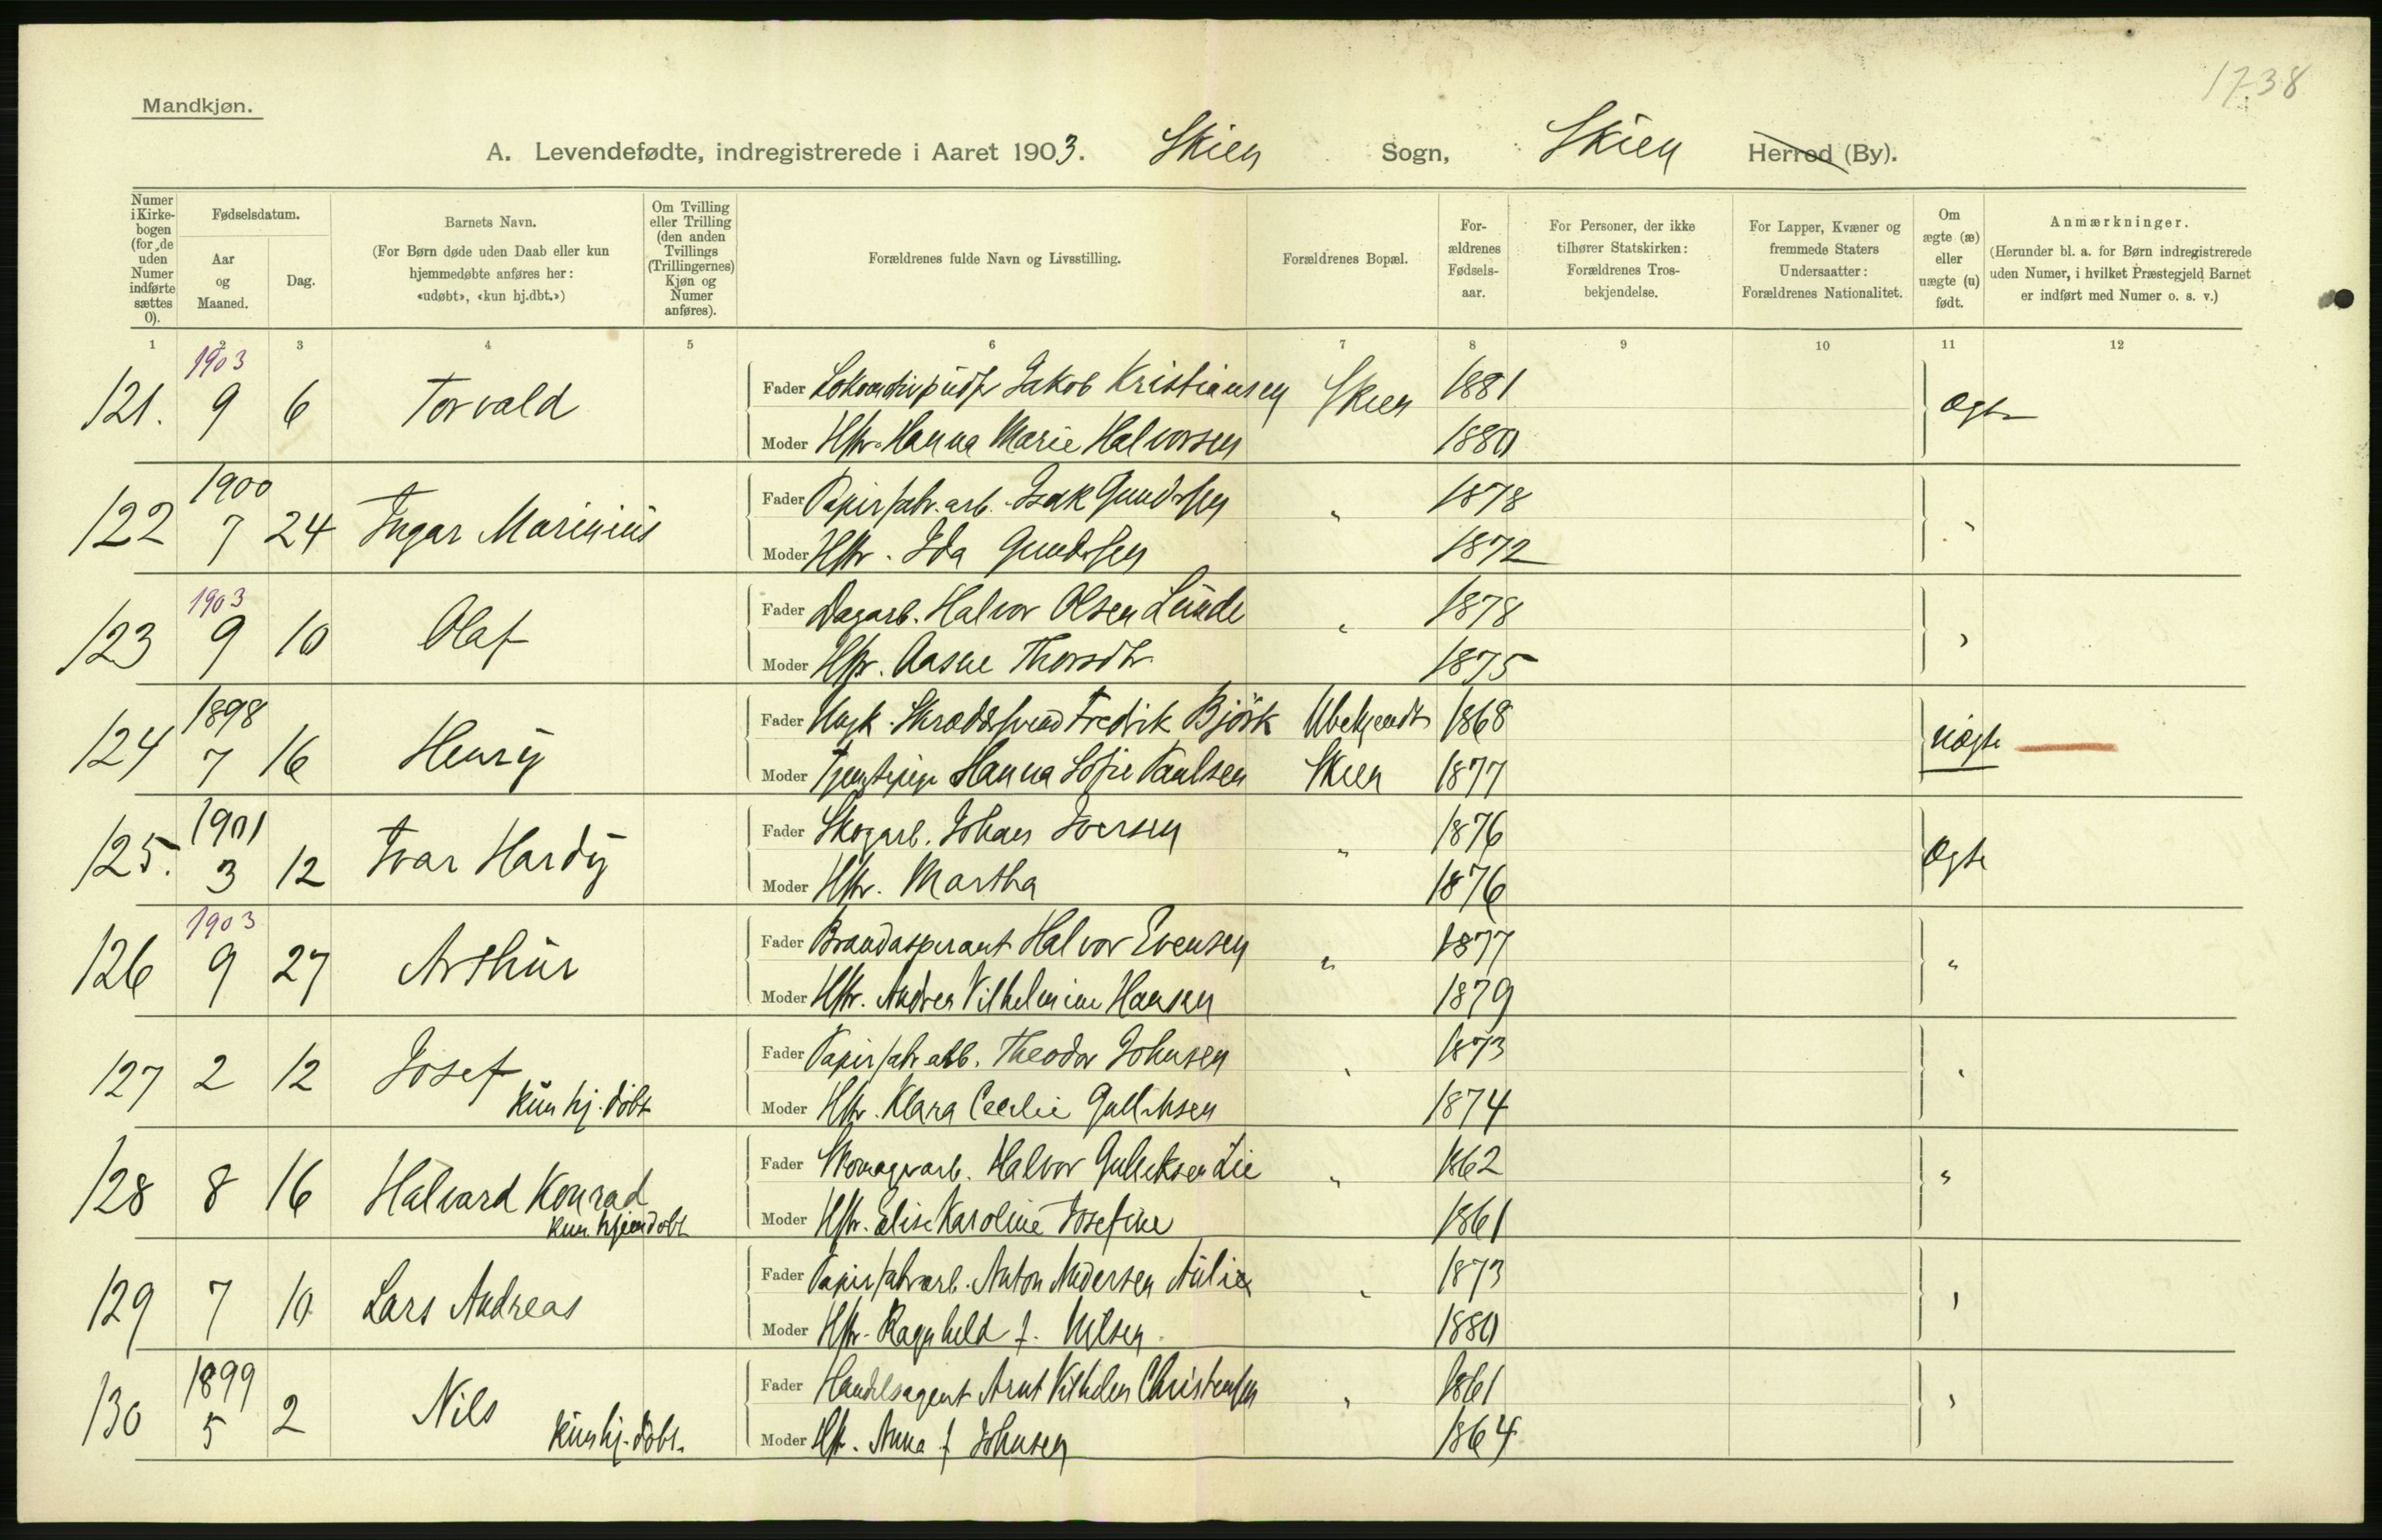 1738
Mandkjøn.
A. Levendefødte, indregistrerede i Aaret 1903. Skien Sogn, Skien Herred (By).
Numer i Kirkebogen (for de uden Numer indførte sættes 0).
Fødselsdatum.
Aar og Maaned.
Dag.
Barnets Navn.
(For Børn døde uden Daab eller kun hjemmedøbte anføres her: «udøbt», «kun hj.dbt.»)
Om Tvilling eller Trilling (den anden Tvillings (Trillingernes) Kjøn og Numer anføres).
Forældrenes fulde Navn og Livsstilling.
Forældrenes Bopæl.
Forældrenes Fødselsaar.
For Personer, der ikke tilhører Statskirken: Forældrenes Trosbekjendelse.
For Lapper, Kvæner og fremmede Staters Undersaatter: Forældrenes Nationalitet.
Om ægte (æ) eller uægte (u) født.
Anmærkninger.
(Herunder bl. a. for Børn indregistrerede uden Numer, i hvilket Præstegjeld Barnet er indført med Numer o. s. v.)
1 2 3 4 5 6 7 8 9 10 11 12
1903
121. 9 6 Torvald
Fader Jakob Kristiansen Skien 1881 ægte
Moder Hstr. Hanna Marie Halvorsen 1880
1900
122 7 24 Ingar Marinius
Fader Papirfabr.arb. Isak Gundersen " 1878 "
Moder Hstr. Ida Gundersen 1872
1903
123 9 10 Olaf
Fader Dagarb. Halvor Olsen Lunde " 1878 "
Moder Hstr. Aasne Thorsdtr 1875
1898
124 7 16 Henry
Fader Ungk. Skræddersvend Fredrik Björk Ubekjendt 1868 uægte
Moder Tjenestepige Hanna Sofie Paulsen Skien 1877
1901
125. 3 12 Ivar Hardy
Fader Skogarb. Johan Iversen " 1876 Ægte
Moder Hstr. Martha 1876
1903
126 9 27 Arthur
Fader Brandaspirant Halvor Evensen " 1877 "
Moder Hstr. Andrea Vilhelmine Hansen 1879
127 2 12 Josef
kun hj. döbt
Fader Papirfabr arb. Theodor Johnsen " 1873 "
Moder Hstr. Klara Cecilie Gulliksen 1874
128 8 16 Halvard Konrad
kun hjemdöbt
Fader Skomagerarb. Halvor Gulliksen Lie " 1862 "
Moder Hstr. Elise Karoline Josefine 1861
129 7 10 Lars Andreas
Fader Papirfabrarb. Anton Andersen Aulie " 1873 "
Moder Hstr. Ragnhild f. Nilsen 1880
1899
130 5 2 Nils
Kun hj. döbt.
Fader Handelsagent Arnt Vilhelm Christensen " 1861 "
Moder Hstr. Anna f Johnsen 1864